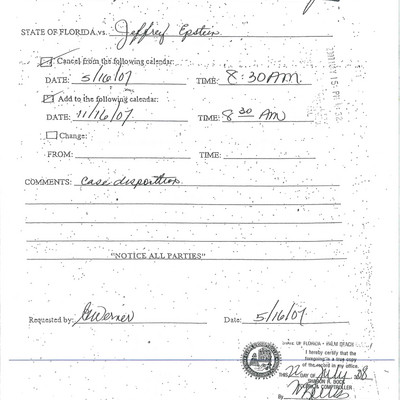 STATE OF FLORIDA vs. Jeffrey Epstein
Cancel from the following calendar:
DATE: 5/16/07 TIME: 8:30 AM
Add to the following calendar:
DATE: 11/16/07 TIME: 8 30 AM
Change:
FROM: TIME:
COMMENTS: Case disposition
"NOTICE ALL PARTIES"
Requested by: Date: 5/16/07
STATE OF FLORIDA • PALM BEACH
I hereby certify that the
foregoing is a true copy
of the record in my office.
THIS 22 DAY OF July
SHARON R. BOCK
COMPTROLLER
By